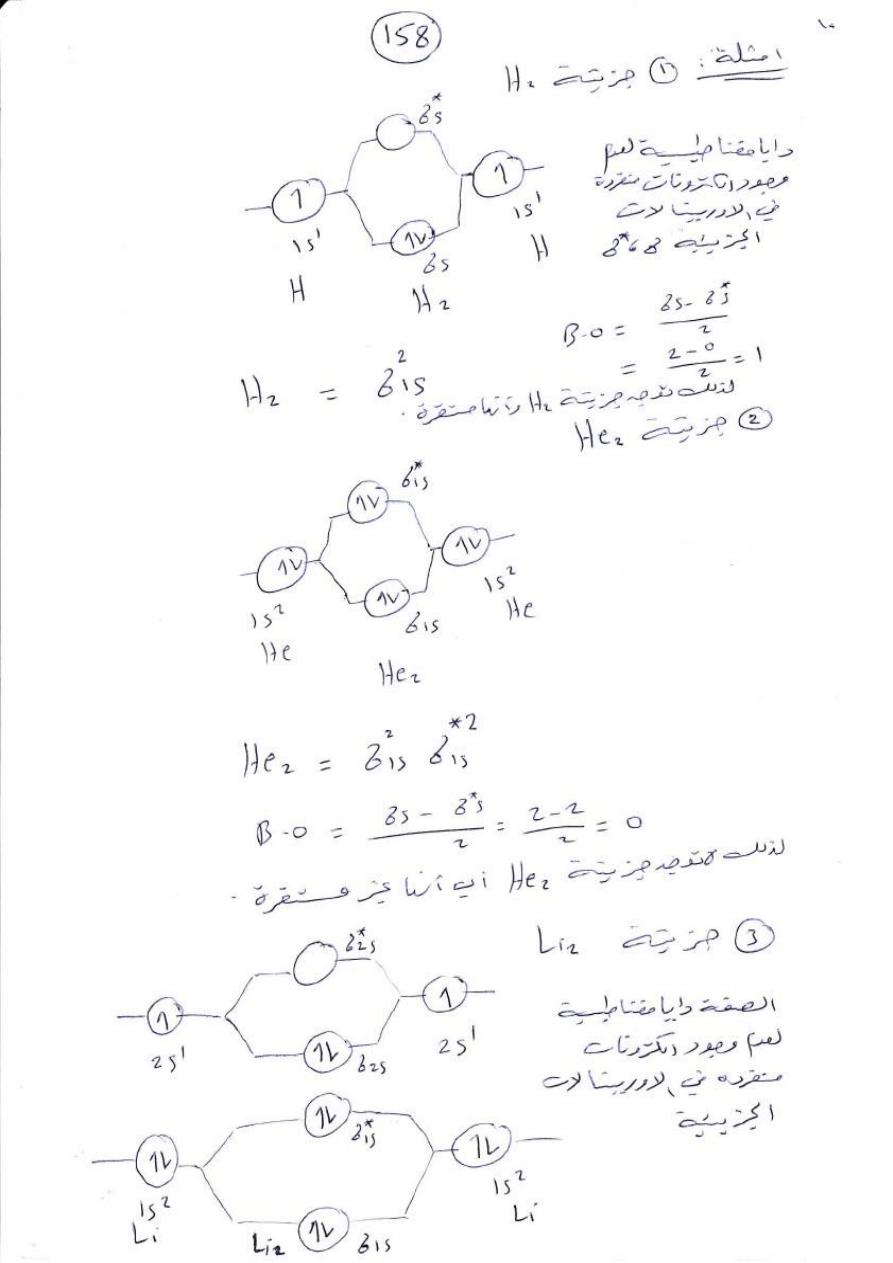 158
١٠
امثلة: ① جزيئة H₂
σ*s
دايامغناطيسية لعدم
وجود الكترونات منفردة
في الاوربيتالات
الجزيئية σ، σ*
1 1
1s¹ 1s¹
1L
σs
H H₂ H
B.O = σs - σ*s / 2
= 2-0 / 2 = 1
H₂ = σ1s²
لذلك توجد جزيئة H₂ وأنها مستقرة.
② جزيئة He₂
σ*1s
1L
1L 1L
1L
1s² σ1s 1s²
He He₂ He
He₂ = σ1s² σ1s*²
B.O = σs - σ*s / 2 = 2-2 / 2 = 0
لذلك لا توجد جزيئة He₂ أي أنها غير مستقرة.
③ جزيئة Li₂
σ*2s
الصفة دايامغناطيسية
لعدم وجود الكترونات
منفردة في الاوربيتالات
الجزيئية
1 1
2s¹ 1L σ2s 2s¹
1L σ*1s
1L 1L
1s² 1s²
Li Li₂ 1L σ1s Li